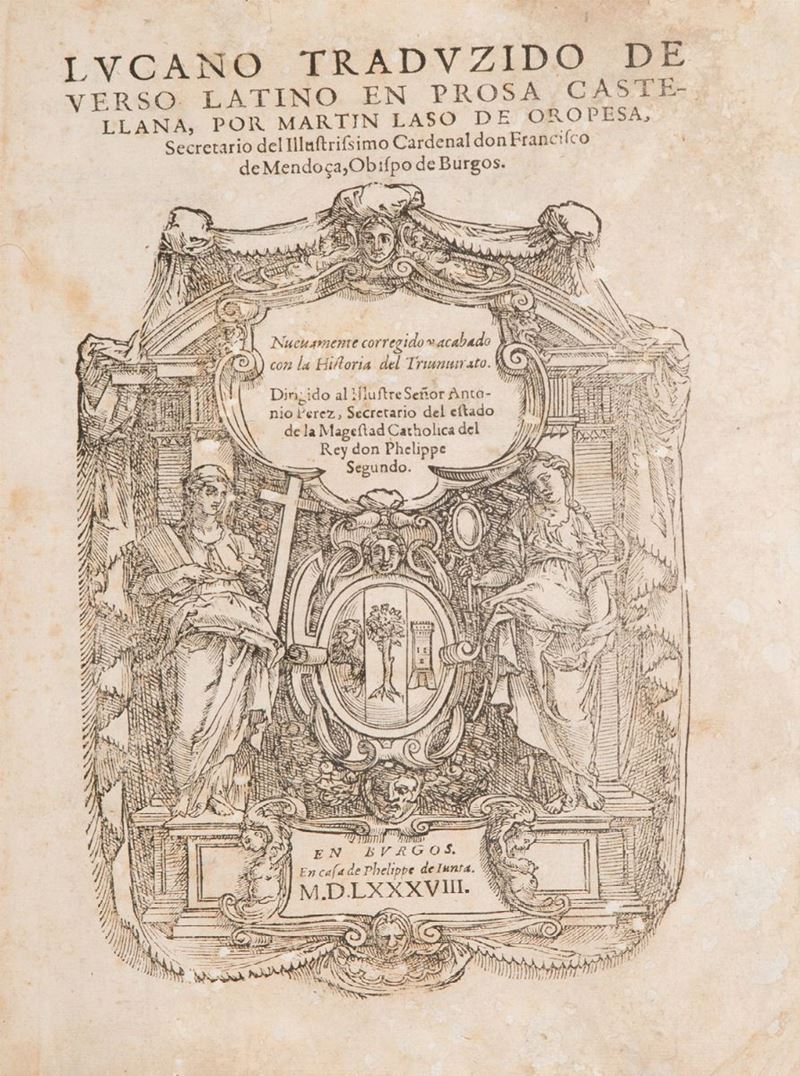 LVCANO TRADVZIDO DE
VERSO LATINO EN PROSA CASTE-
LLANA, POR MARTIN LASO DE OROPESA,
Secretario del Illuſtriſsimo Cardenal don Franciſco
de Mendoça, Obiſpo de Burgos.
Nueuamente corregido y acabado
con la Hiſtoria del Triunuirato.
Dirigido al Illuſtre Señor Anto-
nio Perez, Secretario del eſtado
de la Mageſtad Catholica del
Rey don Phelippe
Segundo.
EN BVRGOS.
En caſa de Phelippe de Iunta.
M.D.LXXXVIII.